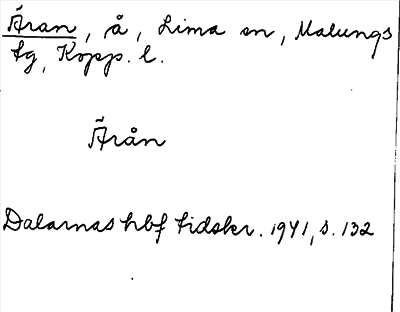 Äran, å, Lima sn, Malungs
tg, Kopp. l.
Ärån
Dalarnas hbf tidskr. 1941, s. 132